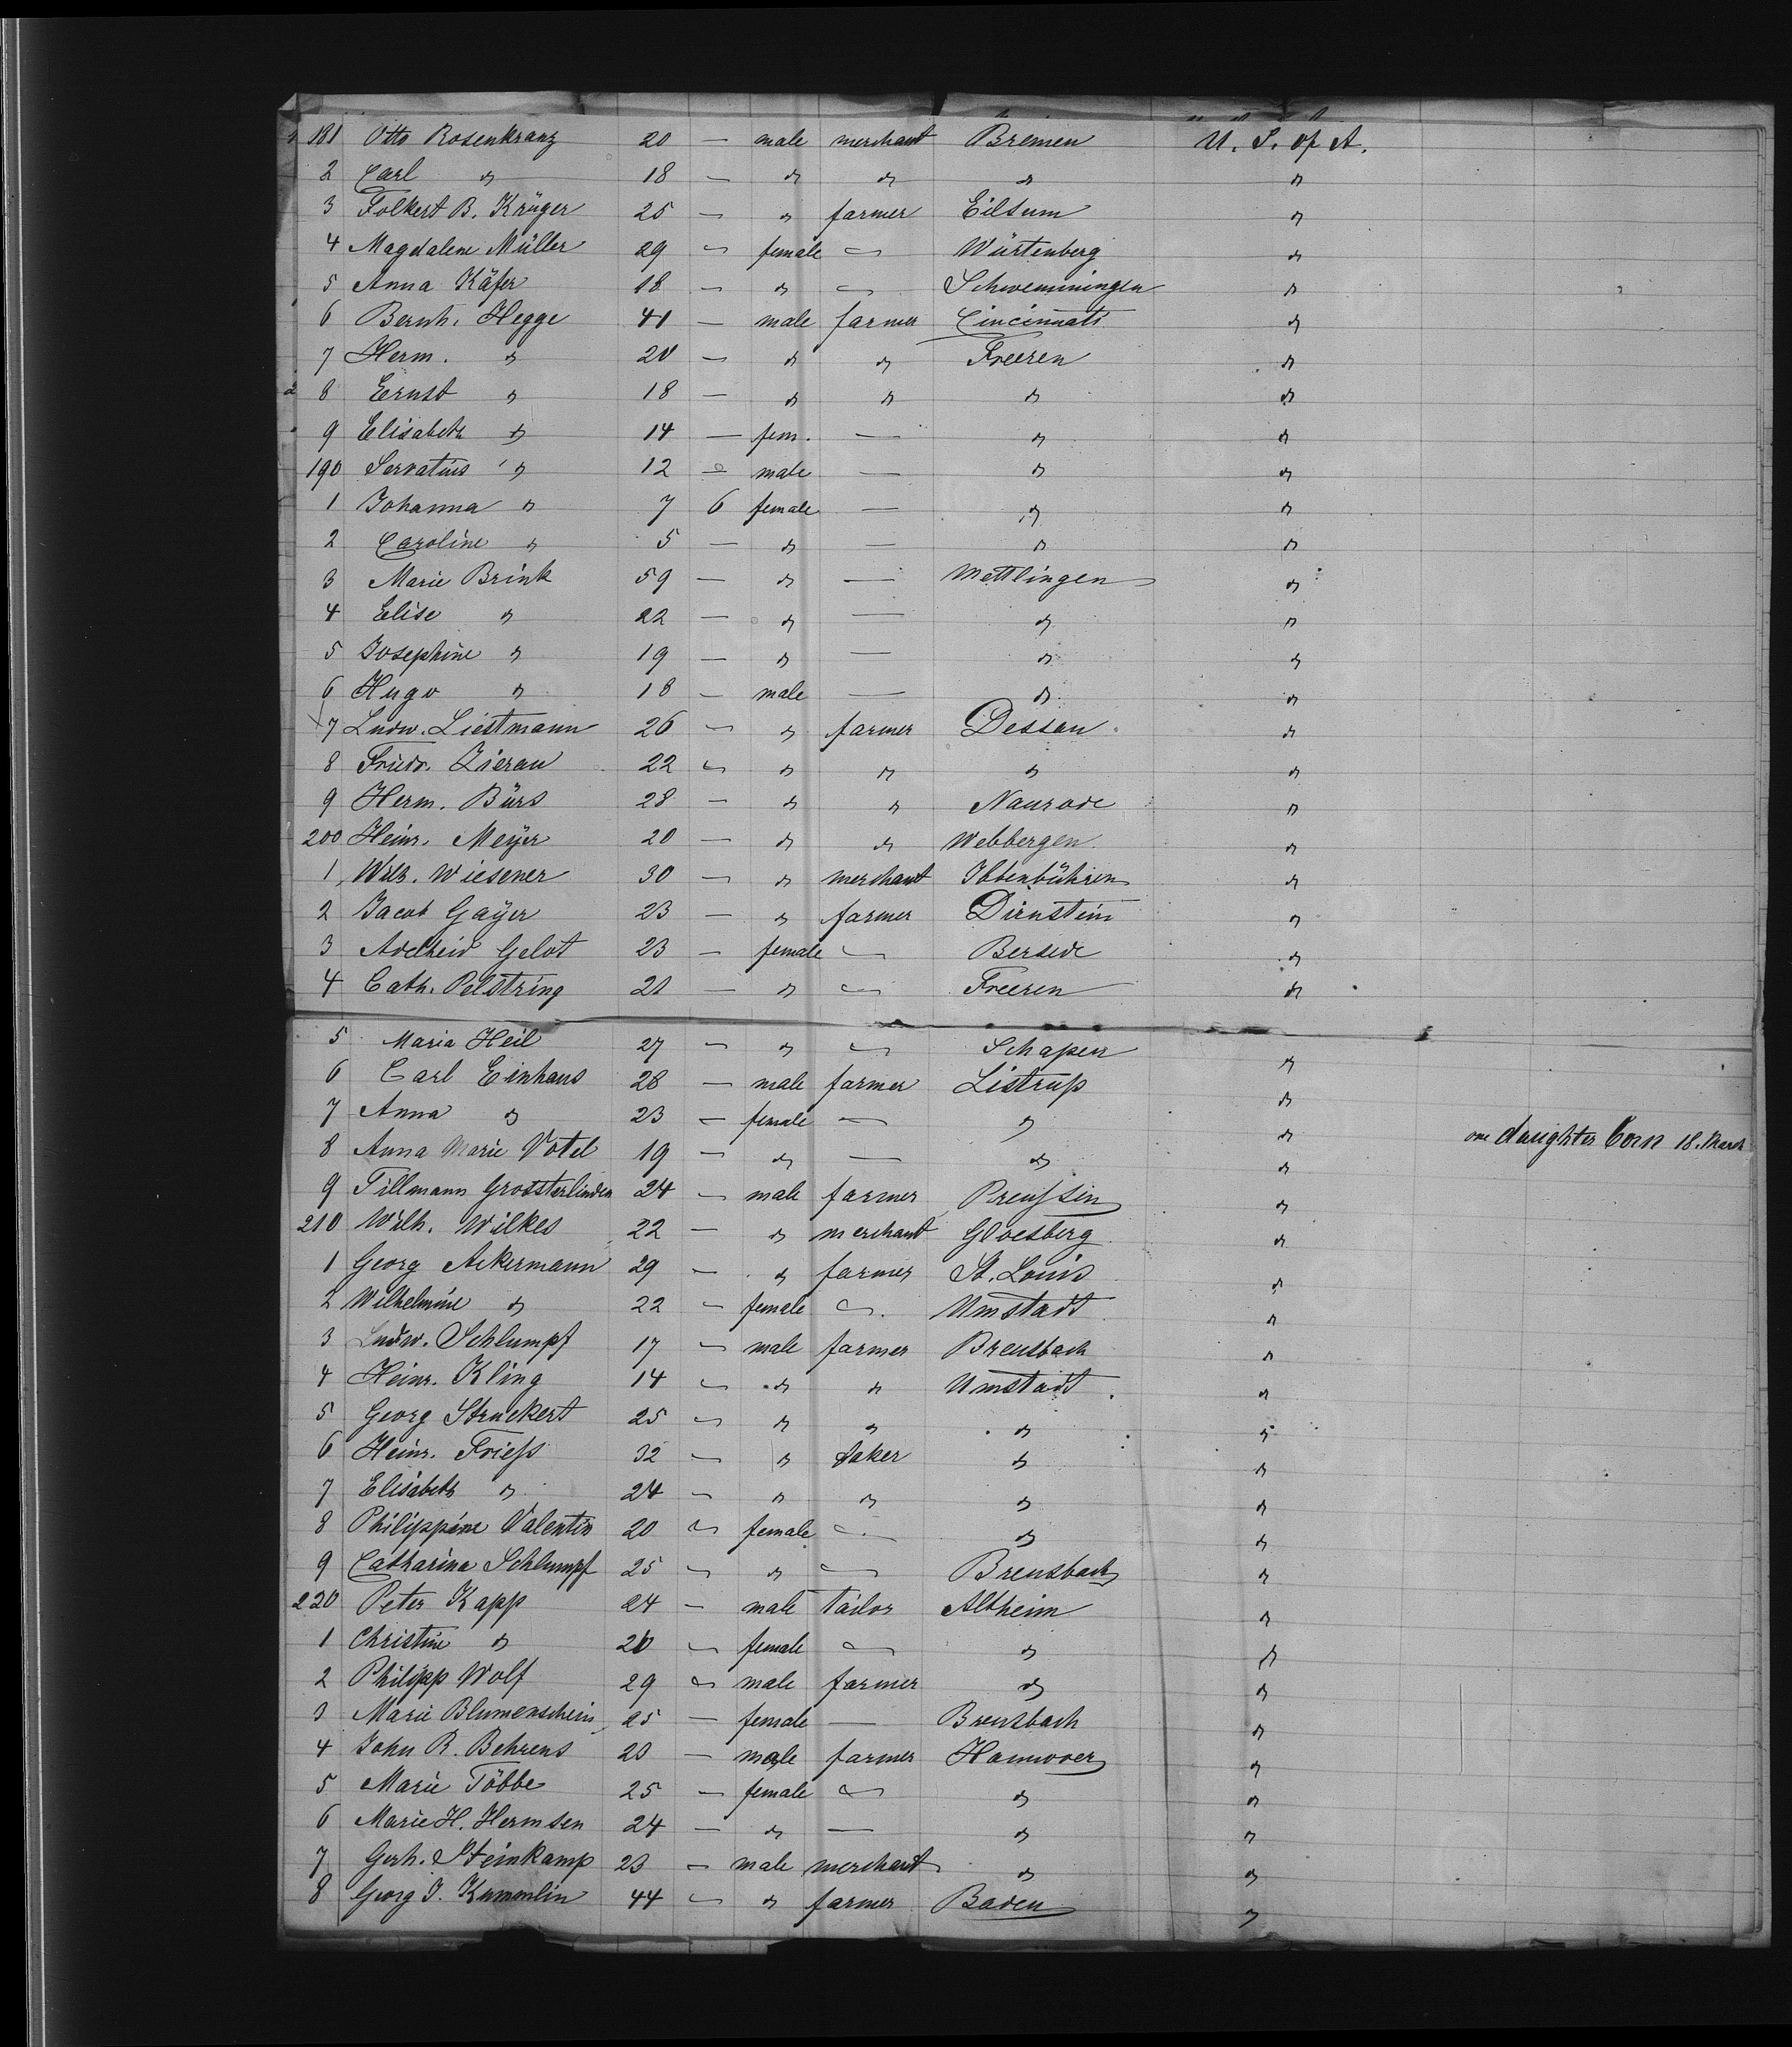 181 Otto Rosenkranz 20 — male merchant Bremen U. S. of A.
2 Carl " 18 — " " " "
3 Folkert B. Krüger 25 — " farmer Eilsum "
4 Magdalene Müller 29 — female — Würtenberg "
5 Anna Käfer 18 — " — Schwenningen "
6 Bernh. Hegge 41 — male farmer Cincinnati "
7 Herm. " 20 — " " Freeren "
8 Ernst " 18 — " " " "
9 Elisabeth " 14 — fem. — " "
190 Servatius " 12 — male — " "
1 Johanna " 7 6 female — " "
2 Caroline " 5 — " — " "
3 Marie Brink 59 — " — Mettlingen "
4 Elise " 22 — " — " "
5 Josephine " 19 — " — " "
6 Hugo " 18 — male — " "
7 Ludw. Liestmann 26 — " farmer Dessau "
8 Friedr. Zierau 22 — " " " "
9 Herm. Bürs 28 — " " Naurode "
200 Heinr. Meÿer 20 — " " Webbergen "
1 Wilh. Wiesener 30 — " merchant Ibbenbühren "
2 Jacob Gaÿer 23 — " farmer Dirnstein "
3 Adelheid Gelot 23 — female — Bersede "
4 Cath. Pelstring 21 — " — Freeren "
5 Maria Heil 27 — " — Schapen "
6 Carl Einhaus 28 — male farmer Listrup "
7 Anna " 23 — female — " " one daughter born 18. March
8 Anna Marie Votel 19 — " — " "
9 Tillmann Grosterlinden 24 — male farmer Preussen "
210 Wilh. Wilkes 22 — " merchant Gloesberg "
1 Georg Ackermann 29 — " farmer St. Louis "
2 Wilhelmine " 22 — female — Umstadt "
3 Ludw. Schlumpf 17 — male farmer Brensbach "
4 Heinr. Kling 14 — " " Umstadt "
5 Georg Struckert 25 — " " " "
6 Heinr. Friess 32 — " baker " "
7 Elisabeth " 24 — " " " "
8 Philippine Valentin 20 — female — " "
9 Catharina Schlumpf 25 — " — Brensbach "
220 Peter Kapp 24 — male Tailor Altheim "
1 Christine " 20 — female — " "
2 Philipp Wolf 29 — male farmer " "
3 Marie Blumenschein 25 — female — Brensbach "
4 John R. Behrens 20 — male farmer Hannover "
5 Marie Többe 25 — female — " "
6 Marie H. Hermsen 24 — " — " "
7 Gerh. Steinkamp 23 — male merchant " "
8 Georg J. Kummlin 44 — " farmer Baden "